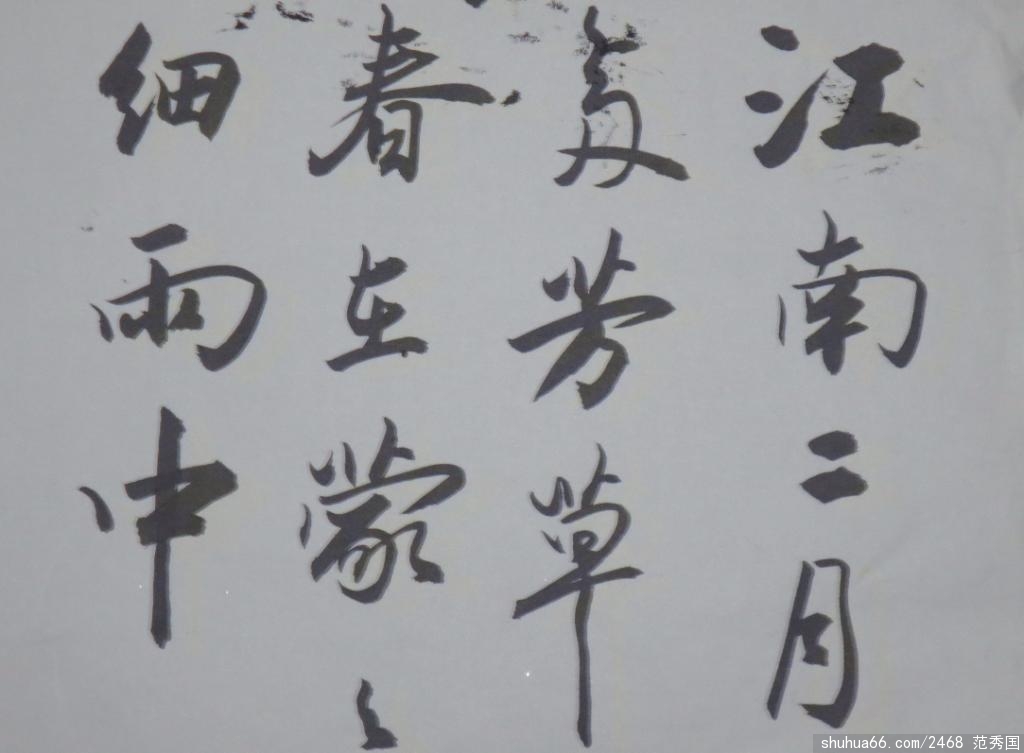 江南二月
多芳草
春在蒙々
细雨中
shuhua66.com/2468 范秀国